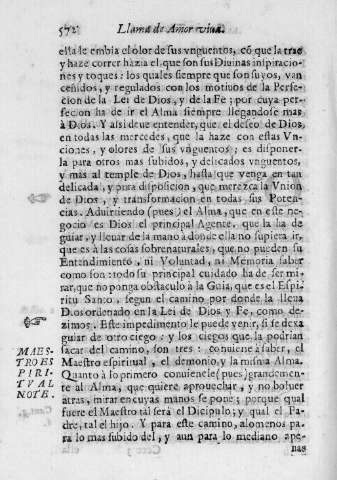 572 Llama de Amor viva.
ella le embia el olor de sus vnguentos, cō que la trae
y haze correr hazia el, que son sus Diuinas inspiracio-
nes y toques: los quales siempre que son suyos, van
ceñidos, y regulados con los motiuos de la Perfec-
cion de la Lei de Dios, y de la Fe; por cuya per-
feccion ha de ir el Alma siempre llegandose mas
à Dios. Y asi deue entender, que el deseo de Dios,
en todas las mercedes, que la haze con estas Vn-
ciones, y olores de sus vnguentos; es disponer-
la para otros mas subidos, y delicados vnguentos,
y mas al temple de Dios, hasta que venga en tan
delicada, y pura disposicion, que merezca la Vnion
de Dios, y transformacion en todas sus Poten-
cias. Aduirtiendo (pues) el Alma, que en este ne-
gocio es Dios el principal Agente, que la ha de
guiar, y lleuar de la mano à donde ella no supiera ir,
que es à las cosas sobrenaturales, que no pueden su
Entendimiento, ni Voluntad, ni Memoria saber
como son: todo su principal cuidado ha de ser mi-
rar, que no ponga obstaculo à la Guia, que es el Espi-
ritu Santo, segun el camino por donde la lleua
Dios ordenado en la Lei de Dios y Fe, como de-
zimos. Este impedimento le puede venir, si se dexa
guiar de otro ciego: y los ciegos que la podrian
sacar del camino, son tres: conuiene à saber, el
Maestro espiritual, el demonio, y la misma Alma.
Quanto à lo primero conuienele (pues) grandemen-
te al Alma, que quiere aprouechar, y no boluer
atras, mirar en cuyas manos se pone; porque qual
fuere el Maestro tal serà el Dicipulo; y qual el Pa-
dre, tal el hijo. Y para este camino, alomenos pa-
ra lo mas subido del, y aun para lo mediano ape-
nas
MAES-
TRO ES
PIRI-
TVAL
NOTE.